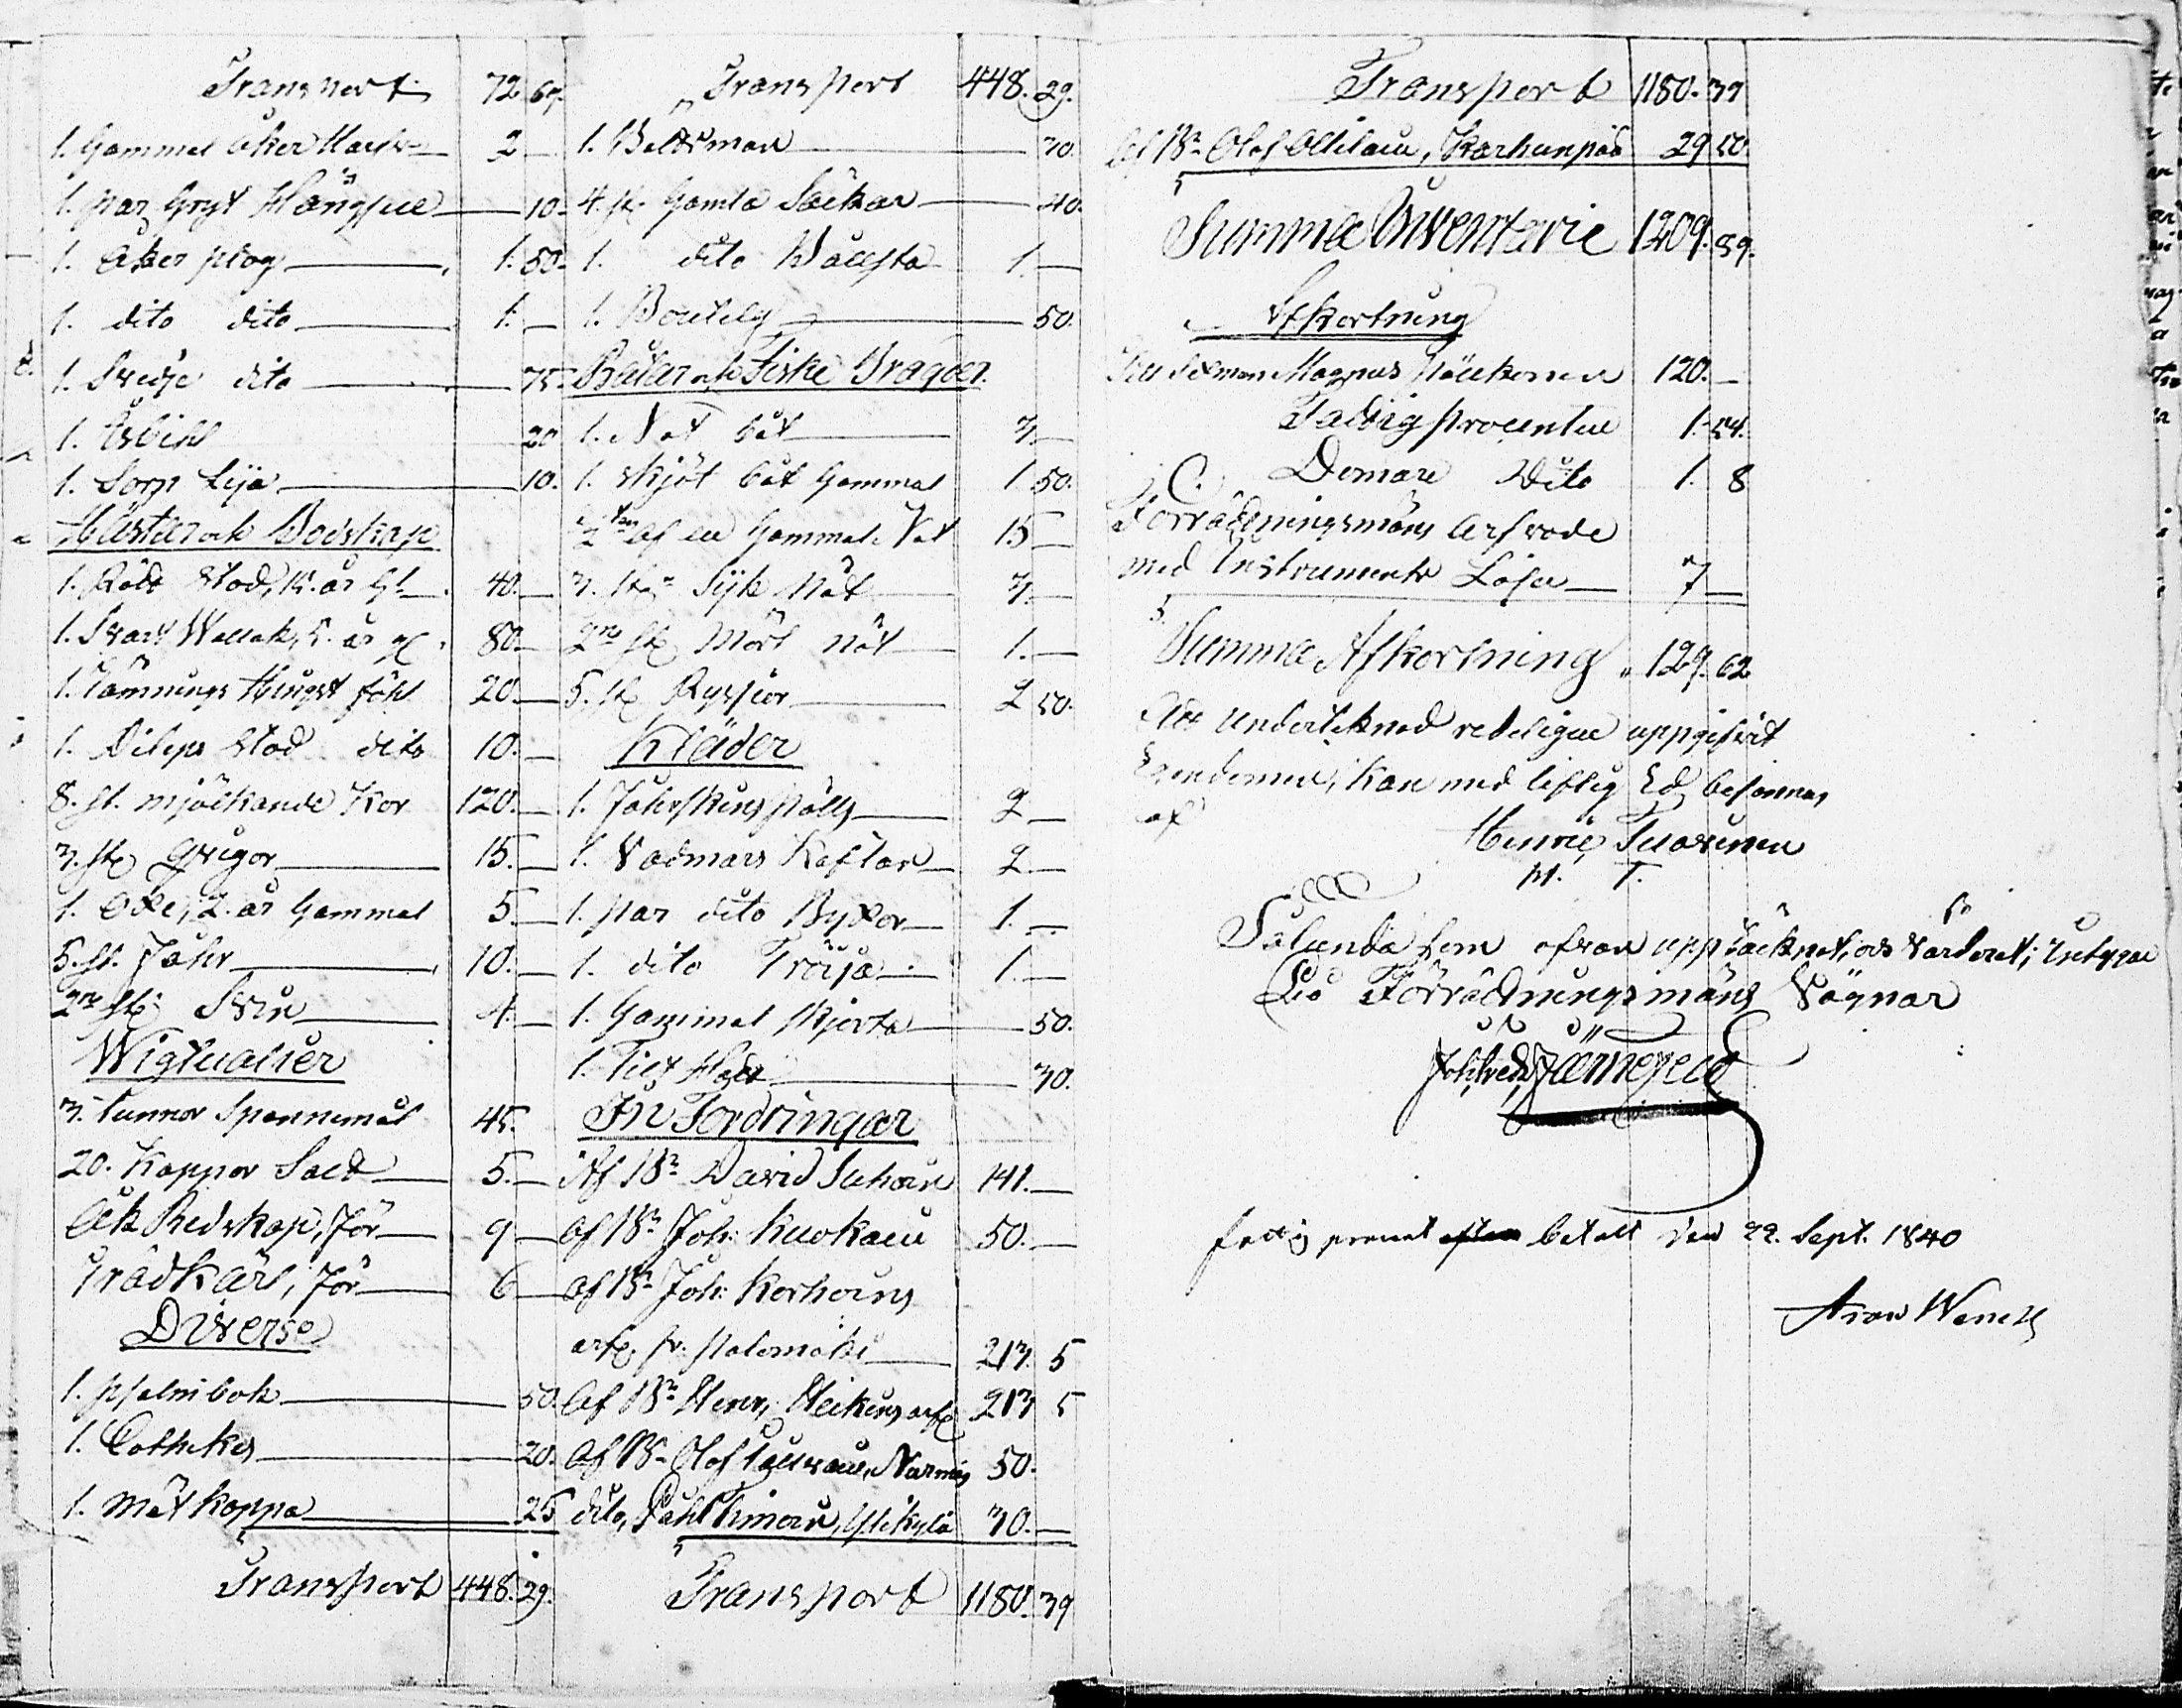 Transport 72. 69.
1. Gammal åker Harf 2 —
1. par Gryt Hängjen — 10.
1. åker plog 1. 50.
1. dito dito 1. —
1. Svedje dito — 75.
1. 20
1. Sorp Lija — 10.
Hästar och Boskap
1. Rödt Stod, 15. år gl. 40. —
1. Svart Wallak, 5. år gl. 80. —
1. Tämnings Hingst föhl 20. —
1. Stod dito 10. —
8. st. mjölkande Kor 120. —
3. st. Qvigor 15. —
1. Oxe, 2. år Gammal 5. —
5. st. Fåhr 10. —
2ne st. Svin 4. —
Wigtualier
3. tunnor Spannemål 45.
20. Kappor Salt 5. —
Åk Redskap, för 9 —
Trädkärl, för 6 —
Diverse
1. psalmbok — 50.
1. Cathekes — 20.
1. mätkappa — 25
Transport 448. 29.
Transport 448. 29.
1. Bältsman — 30.
4. st. Gamla Säckar — 40.
1. dito 1. —
1. Boutelg — 50.
Båtar och Fiske Bragder.
1. Not båt 3 —
1. skjöt båt Gammal 1 50.
af en Gammal Not 15 —
3. st. Sijk Nät 3. —
2ne st. Mört nät 1. —
5. st. Ryssjor 2 50.
Kläder
1. Fåhrskins pälts 2 —
1. Vadmars Kaftan 2. —
1. par dito Byxor 1. —
1. dito Tröija 1. —
1. Gammal skjorta — 50.
1. Filt Hatt — 30.
In Fordringar
Af Bn David Suhoin 141. —
af Bn Joh: Kuokain 50. —
af Bn Joh: Korhoins
arfg. fr. Palomäki 213. 5
Af Bn Henr, Heikins arfg 213 5
Af Bn Olof, Narmis 50.
dito, Påhl Timoin, Ylikylä 30. —
Transport 1180. 39
Transport 1180. 39
Af Bn Olof Ollilain, Karhunpää 29 50
Summa Inventarie 1209. 89.
Afkortning
Till Sexman Magnus 120. —
Fattig procenten 1. 54.
Domare dito 1. 8
Förrättningsmäns Arfvode
med Instrumente Lösen 7 —
Summa Afkortning 129. 62
Att undertecknad redeligen uppgifvit
Egendomen, Kan med liflig Ed, besannas
af
Henric Tuovinen
H. T.
Sålunda som ofvan upptäcknat, och värderat; Intygar
På Förrättningsmäns Vägnar
Joh, Fredr, Järnefelt
fattig procent betalt den 22. Sept. 1840